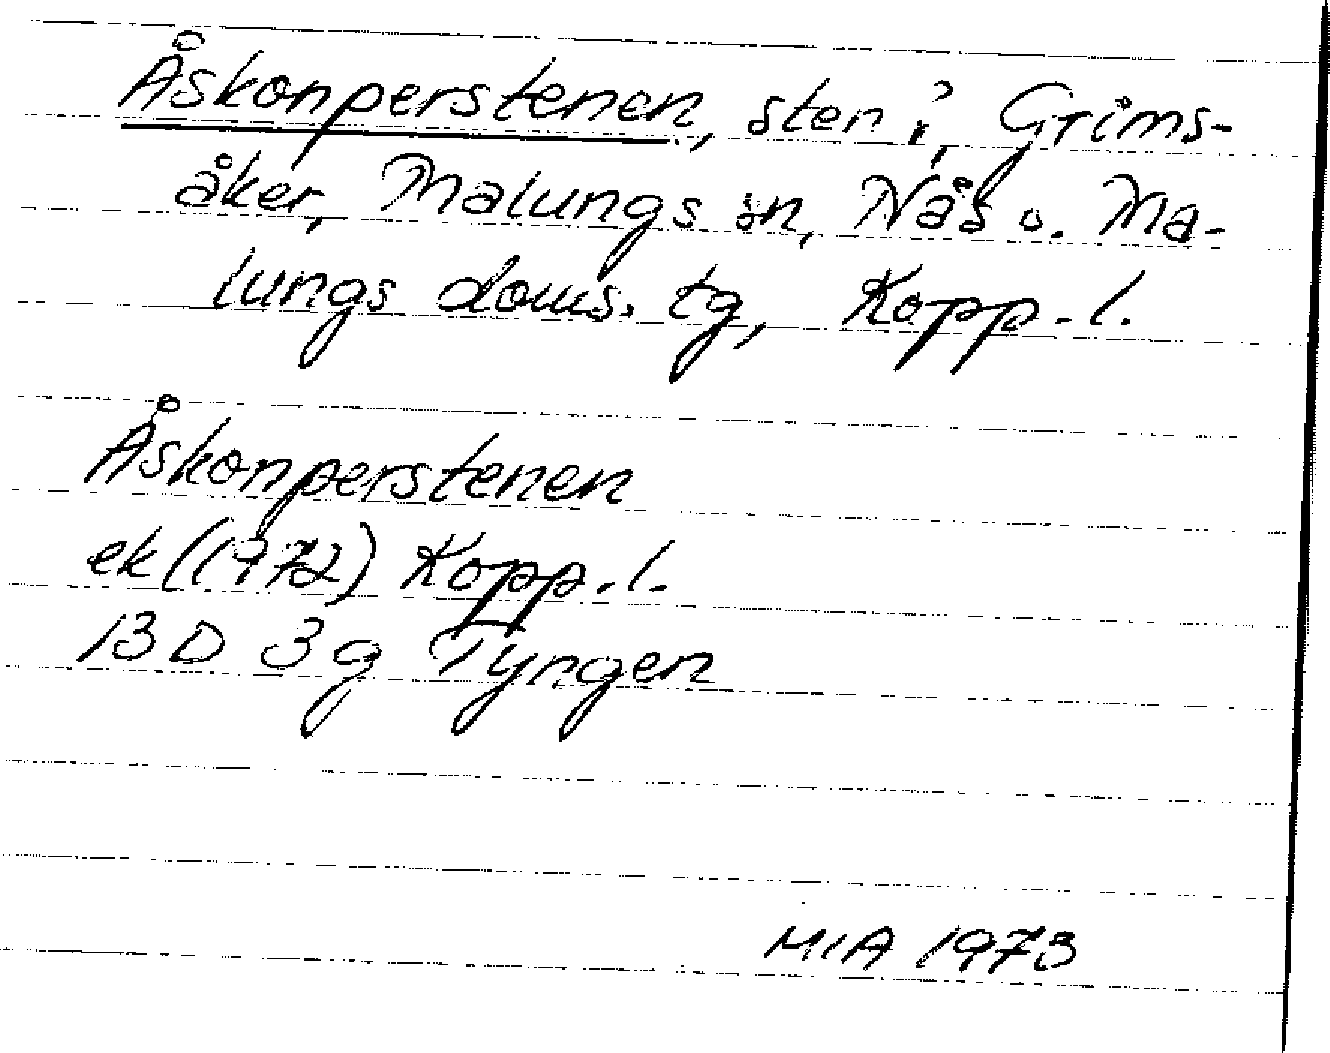 Åskonperstenen, sten i, Grims-
åker, Malungs sn, Nås o. Ma-
lungs doms. tg, Kopp. l.
Åskonperstenen
ek (1972) Kopp. l.
13 D 3 g Tyngen
MIA 1973